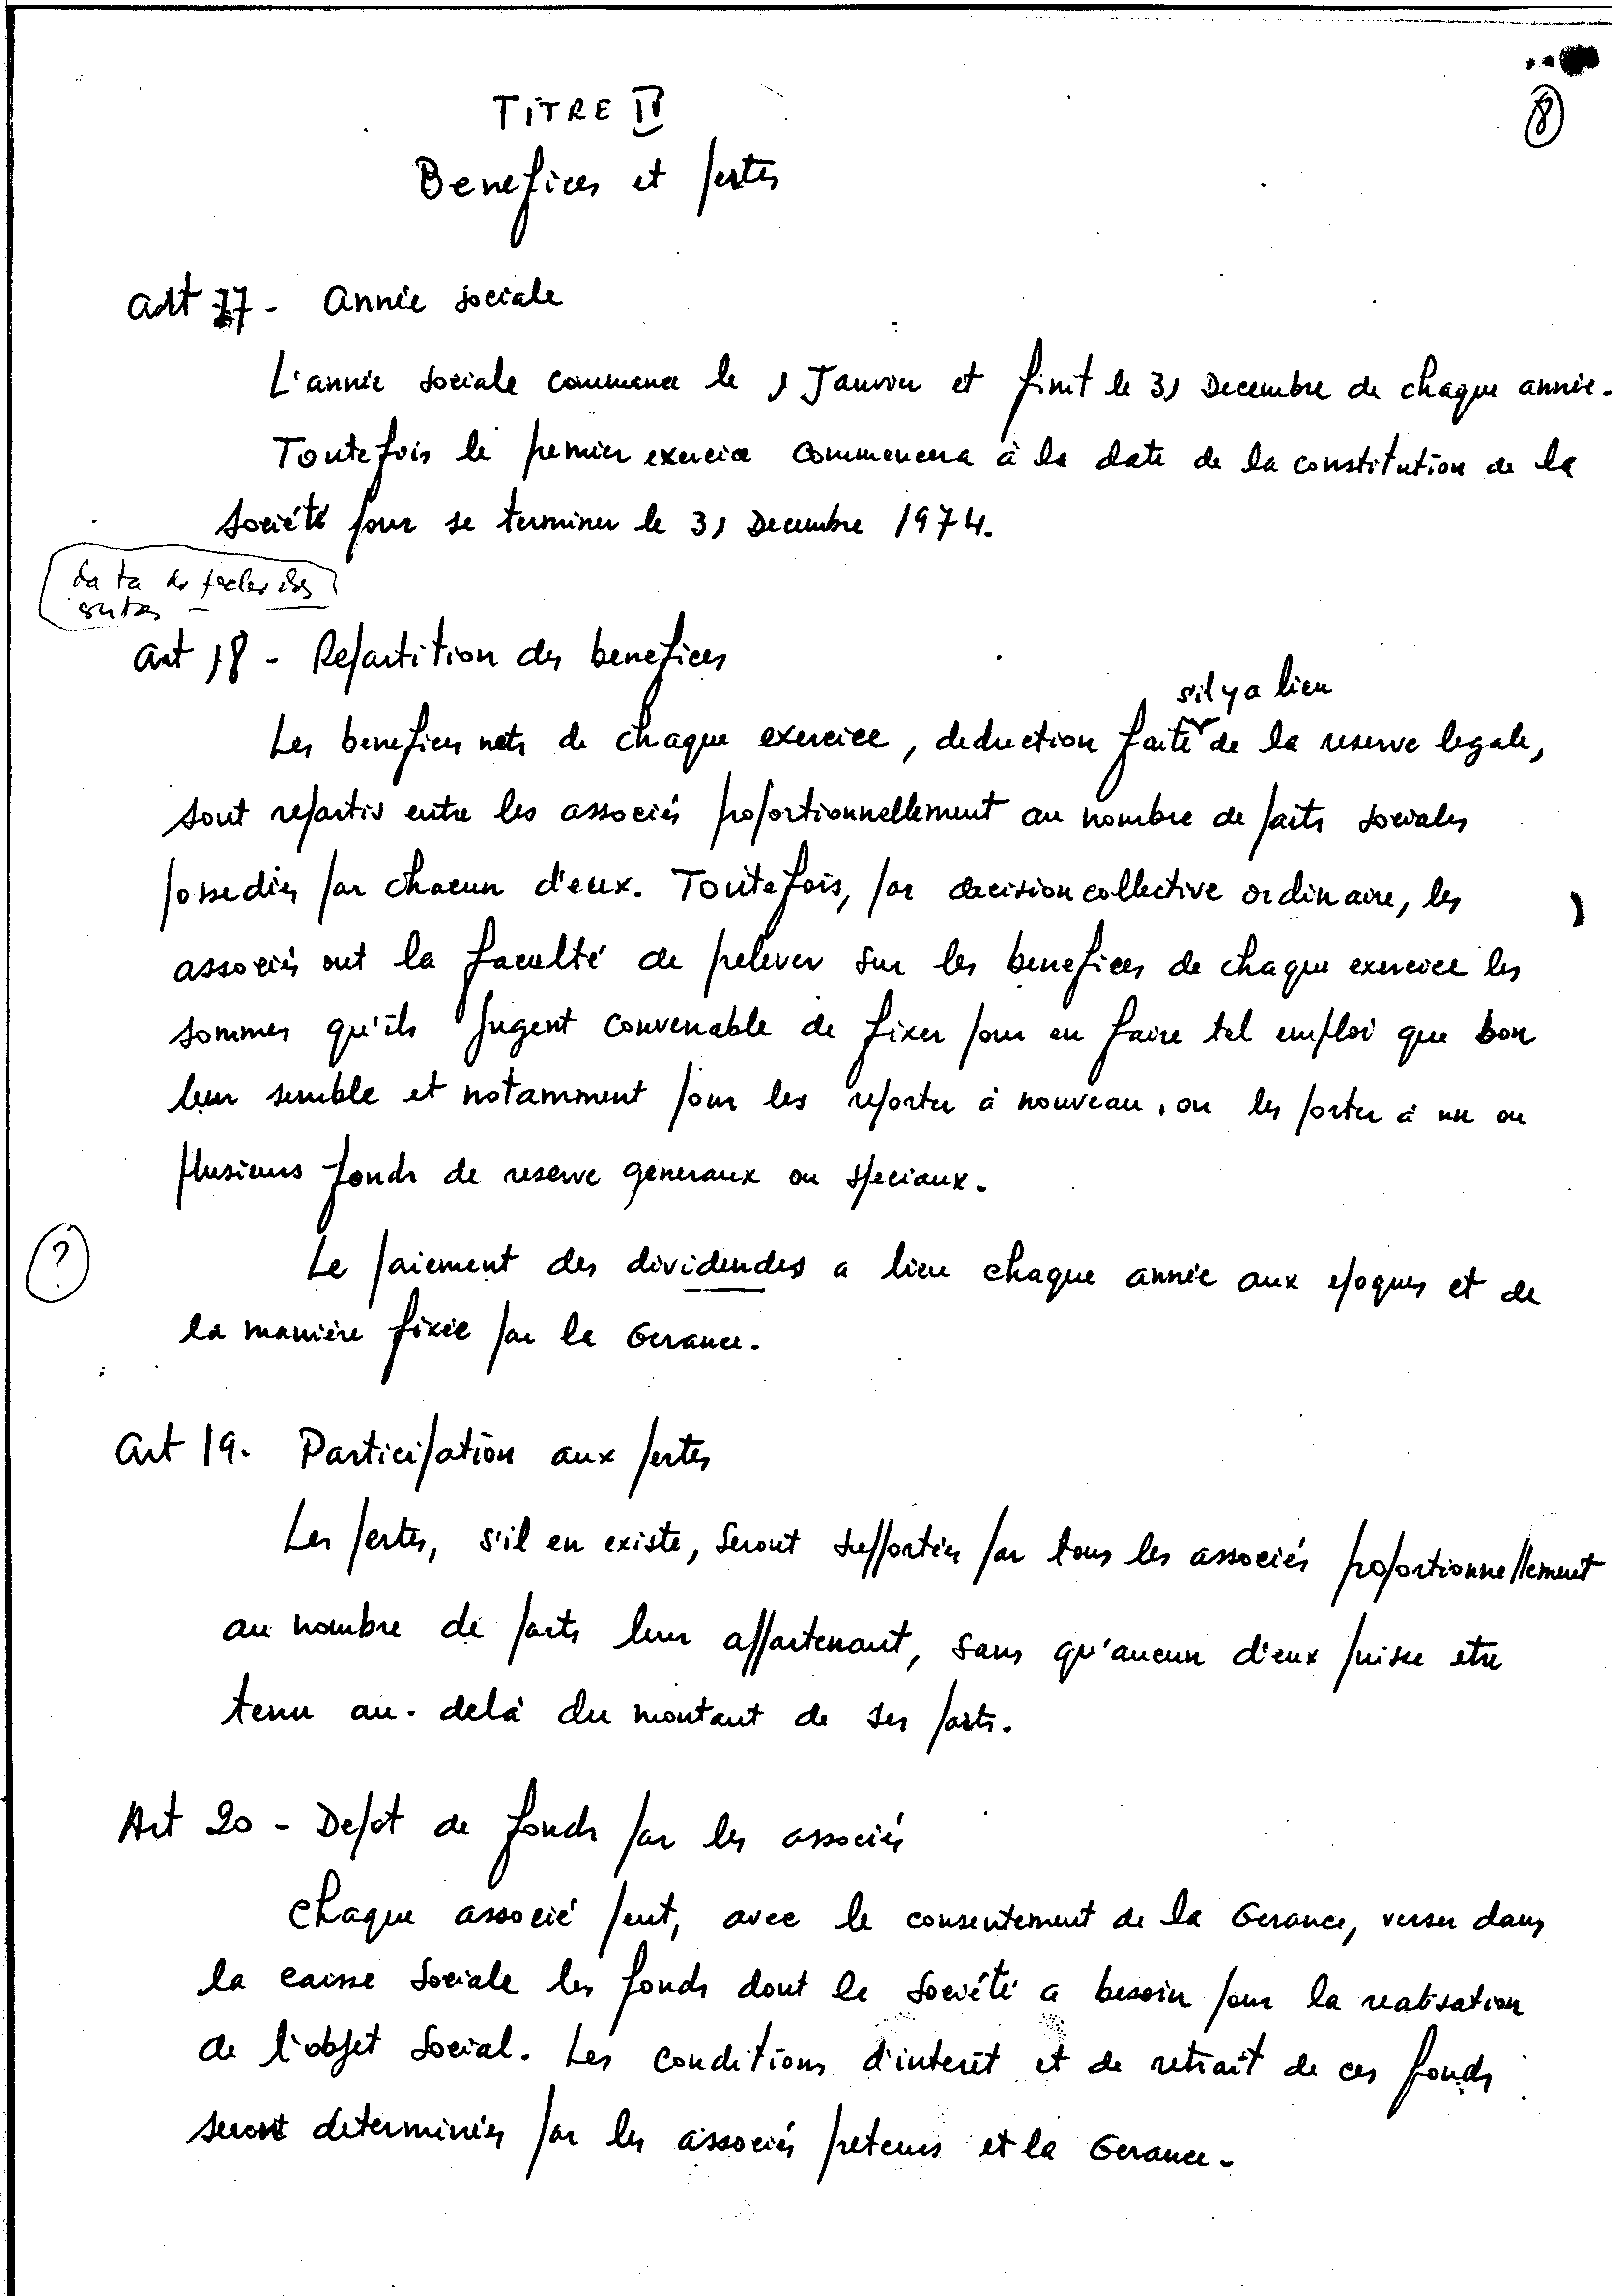 8
TITRE IV
Benefices et pertes
Art 17 - Année sociale
L'année sociale commence le 1 Janvier et finit le 31 Decembre de chaque année.
Toutefois le premier exercice commencera à la date de la constitution de la
société pour se terminer le 31 Decembre 1974.
Art 18 - Repartition des benefices
s'il y a lieu
Les benefices nets de chaque exercice, deduction faite de la reserve legale,
sont repartis entre les associés proportionnellement au nombre de parts sociales
possedées par chacun d'eux. Toutefois, par decision collective ordinaire, les
associés ont la faculté de prelever sur les benefices de chaque exercice les
sommes qu'ils jugent convenable de fixer pour en faire tel emploi que bon
leur semble et notamment pour les reporter à nouveau, ou les porter à un ou
plusieurs fonds de reserve generaux ou speciaux.
?
Le paiement des dividendes a lieu chaque année aux epoques et de
la manière fixée par la Gerance.
Art 19. Participation aux pertes
Les pertes, s'il en existe, seront supportées par tous les associés proportionnellement
au nombre de parts leur appartenant, sans qu'aucun d'eux puisse etre
tenu au-delà du montant de ses parts.
Art 20 - Depot de fonds par les associés
Chaque associé peut, avec le consentement de la Gerance, verser dans
la caisse sociale les fonds dont la société a besoin pour la realisation
de l'objet social. Les conditions d'interêt et de retrait de ces fonds
seront determinées par les associés preteurs et la Gerance.